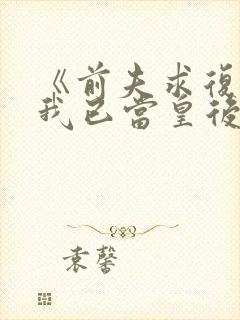 《前夫求復
我已當皇後
袁馨